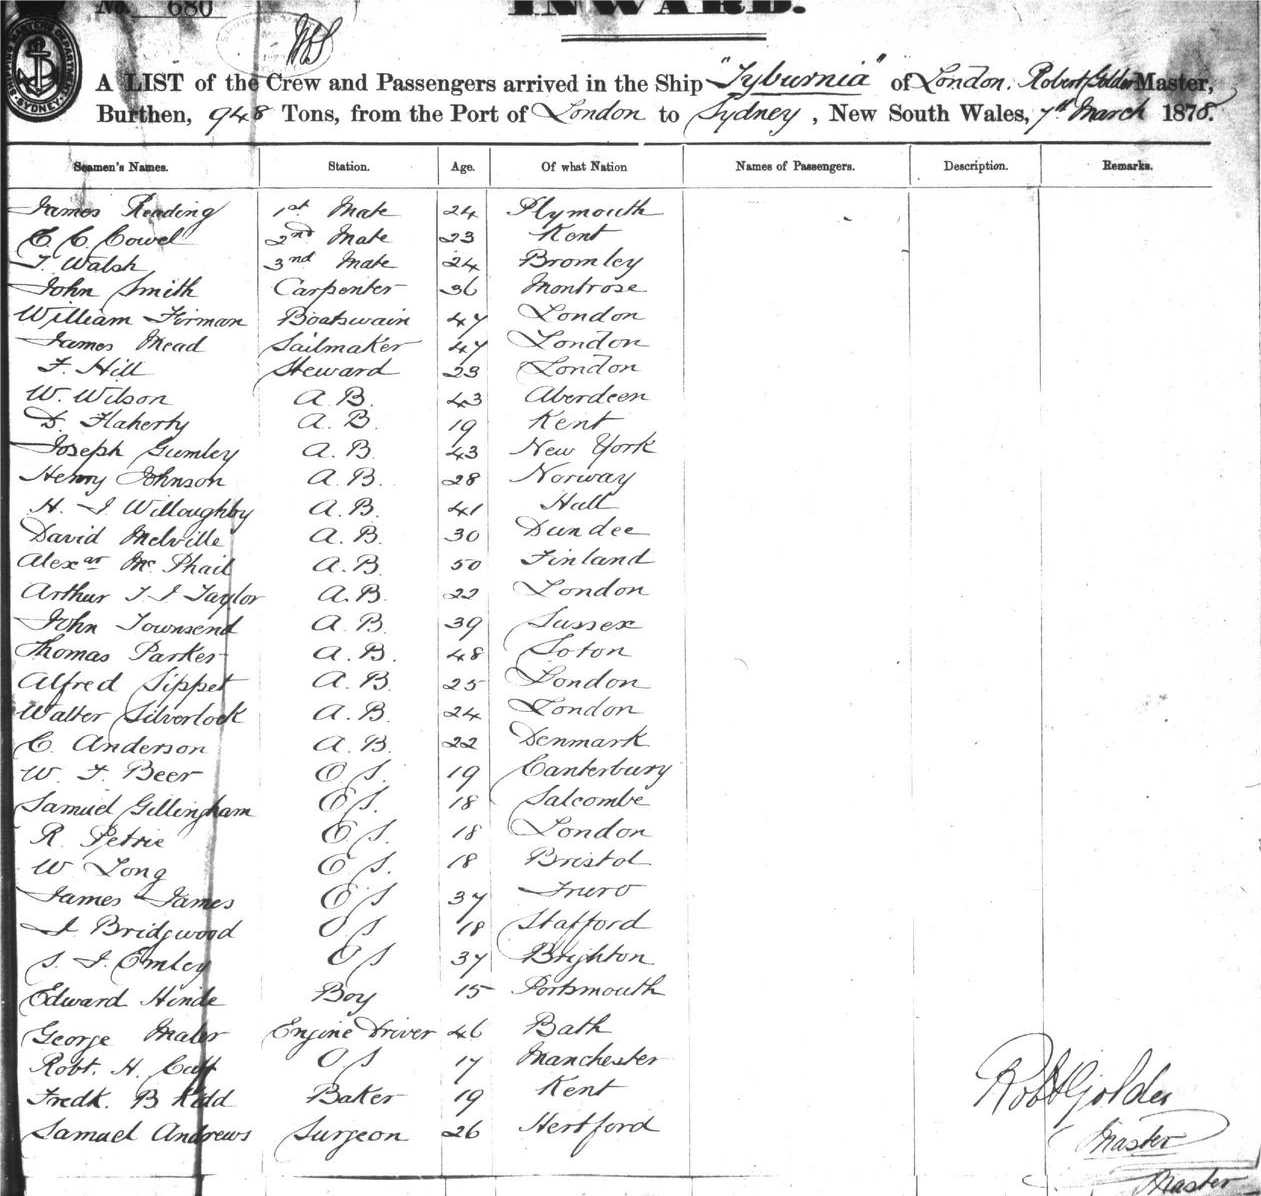 No. 680
INWARD.
SHIPPING MASTERS DEPARTMENT SYDNEY
A LIST of the Crew and Passengers arrived in the Ship "Tyburnia" of London. Robert Golder Master,
Burthen, 948 Tons, from the Port of London to Sydney, New South Wales, 7th March 1878.
Seamen's Names. Station. Age. Of what Nation Names of Passengers. Description. Remarks.
James Reading 1st Mate 24 Plymouth
C. C. Cowel 2nd Mate 23 Kent
T. Walsh 3nd Mate 24 Bromley
John Smith Carpenter 36 Montrose
William Firman Boatswain 47 London
James Mead Sailmaker 47 London
F. Hill Steward 23 London
W. Wilson A.B. 43 Aberdeen
D. Flaherty A.B. 19 Kent
Joseph Gumley A.B. 43 New York
Henry Johnson A.B. 28 Norway
H. J Willoughby A.B. 41 Hull
David Melville A.B. 30 Dundee
Alexar Mc Phail A.B. 50 Finland
Arthur T J Taylor A.B. 22 London
John Townsend A.B. 39 Sussex
Thomas Parker A.B. 48 Soton
Alfred Sippet A.B. 25 London
Walter Silverlock A.B. 24 London
C. Anderson A.B. 22 Denmark
W. F. Beer O.S. 19 Canterbury
Samuel Gillingham O S. 18 Salcombe
R. Petrie O S. 18 London
W Long O S. 18 Bristol
James James O S 37 Truro
J. Bridgwood O S 18 Stafford
S. J. Emley O S 37 Brighton
Edward Hinde Boy 15 Portsmouth
George Maler Engine Driver 46 Bath
Robt. H. Caff O S 17 Manchester
Fredk. B Kidd Baker 19 Kent
Samuel Andrews Surgeon 26 Hertford
Robt Golder
Master
Master